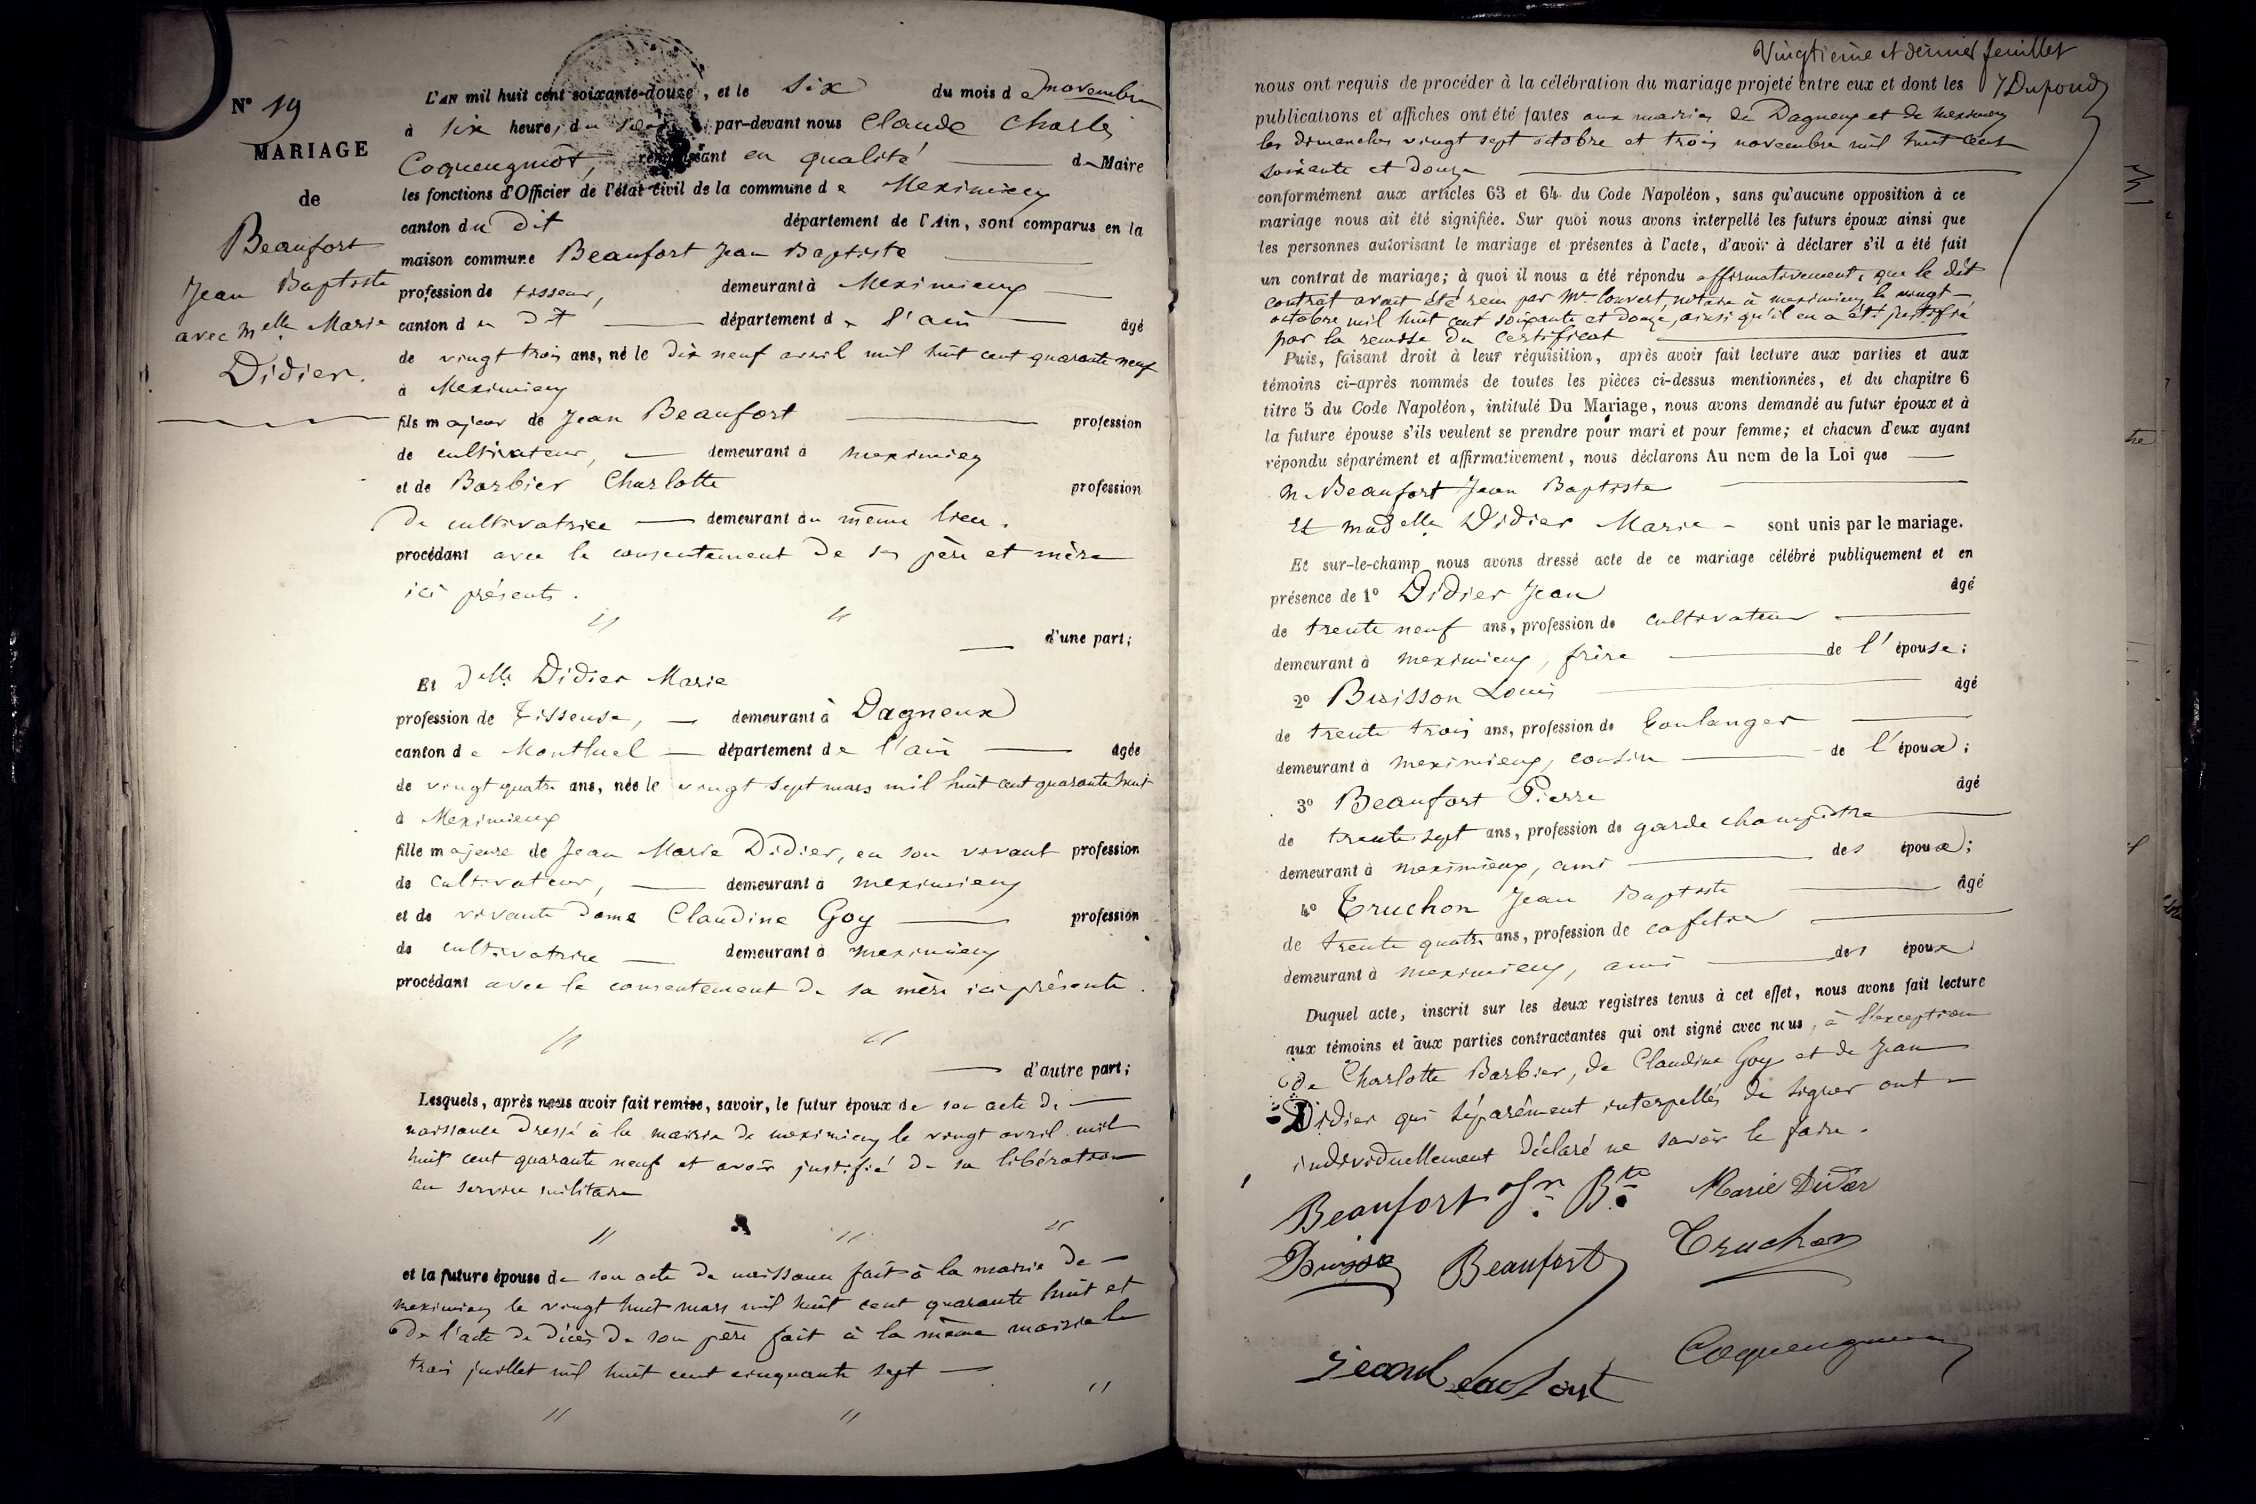 N° 19
MARIAGE
de
Beaufort
Jean Baptiste
avec Melle Marie
Didier.
L'AN mil huit cent soixante-douze, et le six du mois de novembre
à six heures du soir par-devant nous Claude Charles
Coquengniot, remplissant en qualité de Maire
les fonctions d'Officier de l'état civil de la commune de Meximieux
canton du dit département de l'Ain, sont comparus en la
maison commune Beaufort Jean Baptiste
profession de tisseur, demeurant à Meximieux
canton du dit département de l'ain âgé
de vingt trois ans, né le dix neuf avril mil huit cent quarante neuf
à Meximieux
fils majeur de Jean Beaufort profession
de cultivateur, demeurant à meximieux
et de Barbier Charlotte profession
de cultivatrice demeurant au même lieu.
procédant avec le consentement de ses père et mère
ici présents.
" "
d'une part;
Et Delle Didier Marie
profession de Tisseuse, demeurant à Dagneux
canton de Montluel département de l'ain âgée
de vingt quatre ans, née le vingt sept mars mil huit cent quarante huit
à Meximieux
fille majeure de Jean Marie Didier, en son vivant profession
de cultivateur, demeurant à meximieux
et de vivante dame Claudine Goy profession
de cultivatrice demeurant à meximieux
procédant avec le consentement de sa mère ici présente.
" "
d'autre part;
Lesquels, après nous avoir fait remise, savoir, le futur époux de son acte de
naissance dressé à la mairie de meximieux le vingt avril mil
huit cent quarante neuf et avoir justifié de sa libération
au service militaire
" " "
et la future épouse de son acte de naissance fait à la mairie de
meximieux le vingt huit mars mil huit cent quarante huit et
de l'acte de décès de son père fait à la même mairie le
trois juillet mil huit cent cinquante sept
" " "
Vingtième et dernier feuillet
nous ont requis de procéder à la célébration du mariage projeté entre eux et dont les
J Dupond
publications et affiches ont été faites aux mairies de Dagneux et de meximieux
les dimanches vingt sept octobre et trois novembre mil huit cent
soixante et douze
conformément aux articles 63 et 64 du Code Napoléon, sans qu'aucune opposition à ce
mariage nous ait été signifiée. Sur quoi nous avons interpellé les futurs époux ainsi que
les personnes autorisant le mariage et présentes à l'acte, d'avoir à déclarer s'il a été fait
un contrat de mariage; à quoi il nous a été répondu affirmativement, que le dit
contrat avait été reçu par Me Convert, notaire à meximieux le vingt
octobre mil huit cent soixante et douze, ainsi qu'il en a été justifié
par la remise du certificat
Puis, faisant droit à leur réquisition, après avoir fait lecture aux parties et aux
témoins ci-après nommés de toutes les pièces ci-dessus mentionnées, et du chapitre 6
titre 5 du Code Napoléon, intitulé Du Mariage, nous avons demandé au futur époux et à
la future épouse s'ils veulent se prendre pour mari et pour femme; et chacun d'eux ayant
répondu séparément et affirmativement, nous déclarons Au nom de la Loi que
M. Beaufort Jean Baptiste
Et Madelle Didier Marie sont unis par le mariage.
Et sur-le-champ nous avons dressé acte de ce mariage célébré publiquement et en
présence de 1° Didier Jean âgé
de trente neuf ans, profession de cultivateur
demeurant à meximieux, frère de l'épouse;
2° Buisson Louis âgé
de trente trois ans, profession de boulanger
demeurant à meximieux, cousin de l'époux;
3° Beaufort Pierre âgé
de trente sept ans, profession de garde champêtre
demeurant à meximieux, ami des époux;
4° Truchon Jean Baptiste âgé
de trente quatre ans, profession de cafetier
demeurant à meximieux, ami des époux
Duquel acte, inscrit sur les deux registres tenus à cet effet, nous avons fait lecture
aux témoins et aux parties contractantes qui ont signé avec nous, à l'exception
de Charlotte Barbier, de Claudine Goy et de Jean
Didier qui séparément interpellés de signer ont
individuellement déclaré ne savoir le faire.
Beaufort Jn Bte Marie Didier
Buisson Beaufort Truchon
Jean beaufort Coquengniot